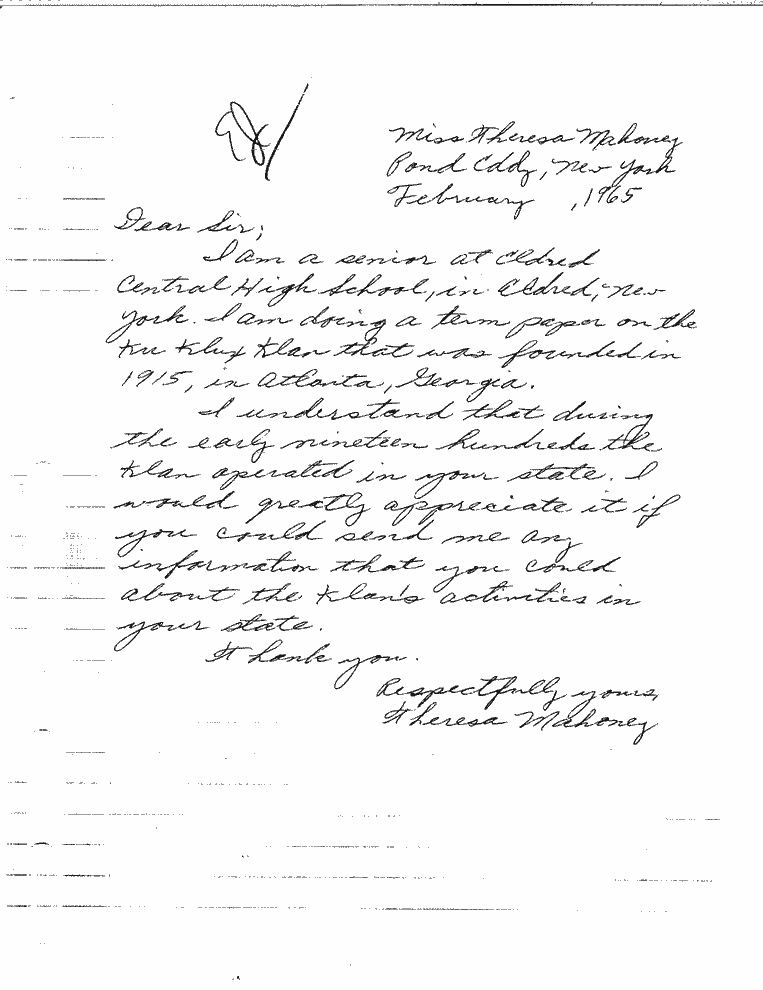 Miss Theresa Mahoney
Pond Eddy, New York
February , 1965
Dear Sir;
I am a senior at Eldred
Central High School, in Eldred, New
York. I am doing a term paper on the
Ku Klux Klan that was founded in
1915, in Atlanta, Georgia.
I understand that during
the early nineteen hundreds the
Klan operated in your state. I
would greatly appreciate it if
you could send me any
information that you could
about the Klan's activities in
your state.
Thank you.
Respectfully yours,
Theresa Mahoney